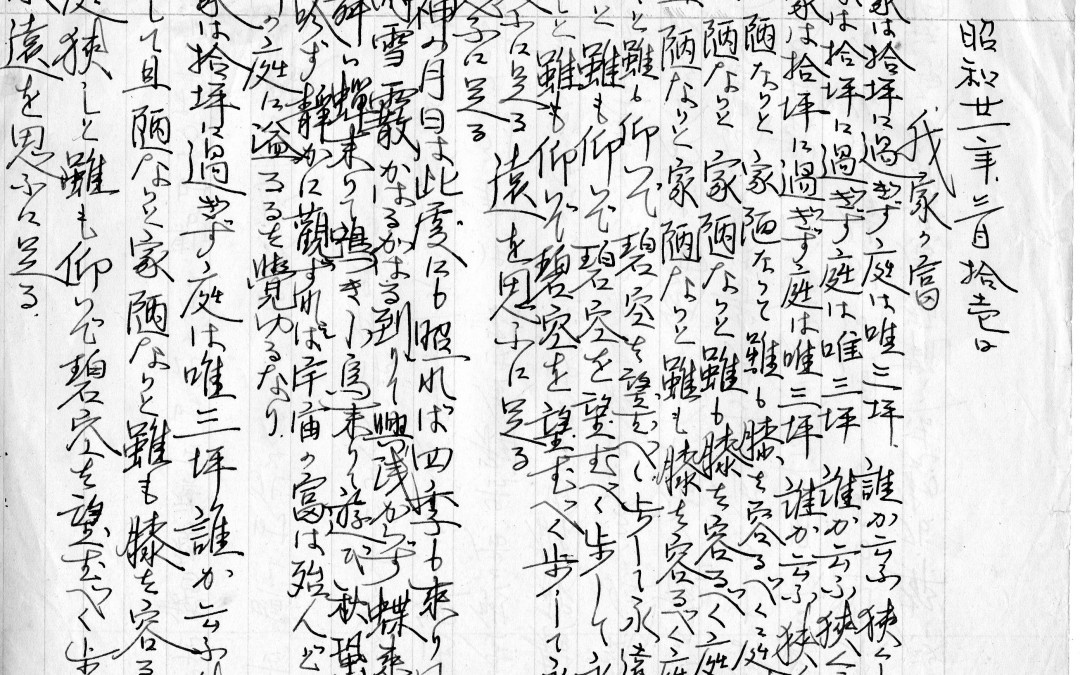 昭和廿二年三月拾壱日
我家の富
家は拾坪に過ぎず庭は唯三坪 誰か云ふ狭くし
家は拾坪に過ぎず庭は唯三坪 誰か云ふ狭く
家は拾坪に過ぎず庭は唯三坪 誰か云ふ狭く
陋なりと 家陋なりと雖も膝を容るべく庭
陋なりと 家陋なりと雖も膝を容るべく庭
陋なりと家陋なりと雖も膝を容るべく庭
と雖も仰いで碧空を望むべく歩して永遠
と雖も仰いで碧空を望むべく歩して永
と雖も仰いで碧空を望むべく歩して
ふに足る 遠を思ふに足る
ふに足る
神の月日は此處にも照れば四季も来りて
雨雪霰かはるかはる到りて興浅からず蝶来
舞ひ蝉来りて鳴き小鳥来りて遊び秋蛩
吟ず静かに觀ずれば宇宙の富は殆んど
の庭に溢るるを覺ゆるなり
家は拾坪に過ぎず庭は唯三坪 誰か云ふ
して且陋なりと家陋なりと雖も膝を容る
狭しと雖も仰いで碧空を望むべく歩
遠を思ふに足る